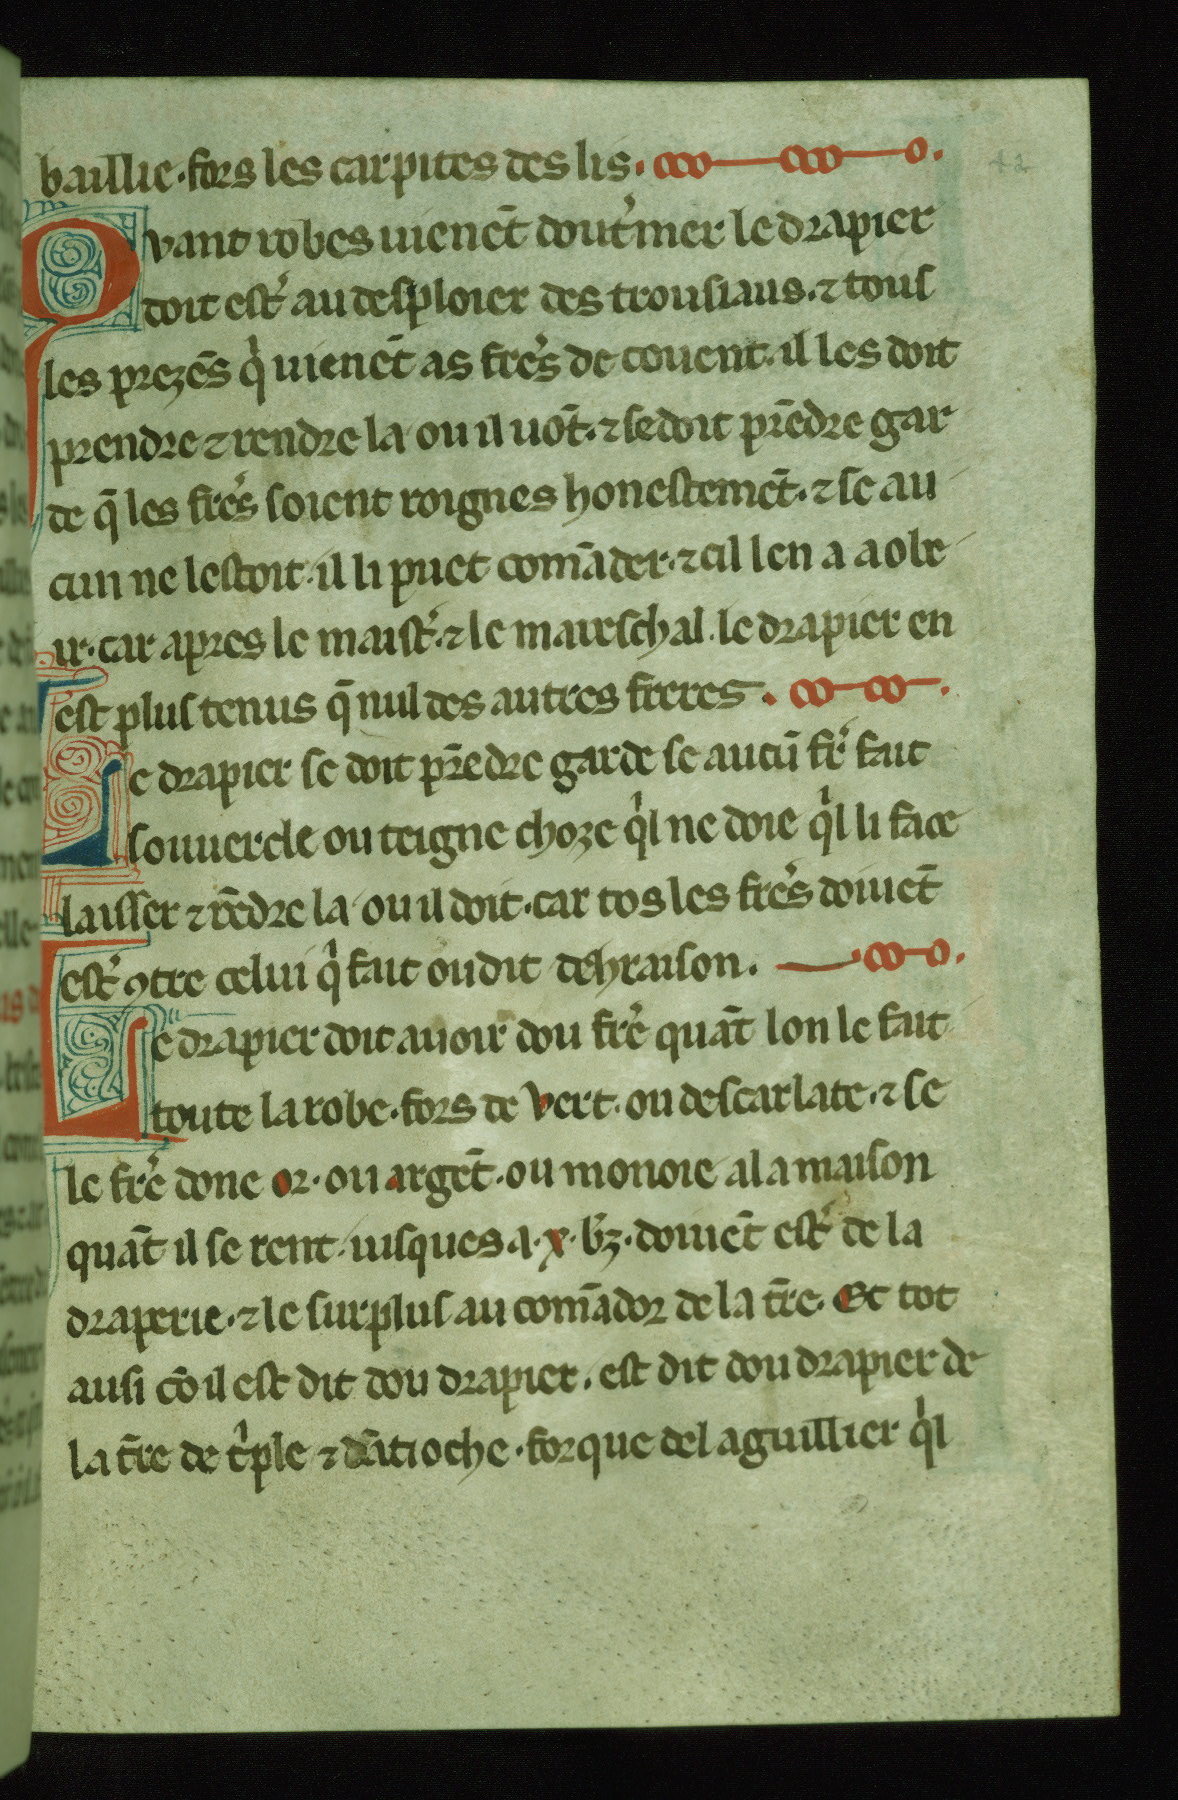 baillie · fors les carpites des lis ·
Qvant robes uienēt dout'mer le drapier
doit est' au desploier des trousiaus · ⁊ tous
les prezēs q̍ uienēt as frẽs de couent · il les doit
prendre ⁊ rendre la ou il uōt · ⁊ se doit prēdre gar
de q̄ les frẽs soient roignes honestemēt · ⁊ se au
cun ne lestoit · il li puet comāder · ⁊ cil len a a obe
ir · car apres le maist' · ⁊ le mareschal · le drapier en
est plus tenus q̄ nul des autres freres ·
Le drapier se doit prēdre garde se aucū fr̃ fait
souuercle ou teigne choze q̍l ne doie q̍l li face
laisser ⁊ rēdre la ou il doit · car tos les frẽs doiuēt
est' ꝯtre celui q̍ fait ou dit dehraison ·
Le drapier doit auoir dou frẽ quāt lon le fait
toute la robe · fors de vert · ou descarlate · ⁊ se
le frẽ done or · ou argēt · ou monoie a la maison
quāt il se rent · iusques a · x · bz̃ · doiuēt est' de la
draperie · ⁊ le surplus au comādor de la tr̃e · Et tot
ausi cō il est dit dou drapier · est dit dou drapier de
la tr̃e de t̍ple ⁊ dātioche · for que del aguillier q̍l
42